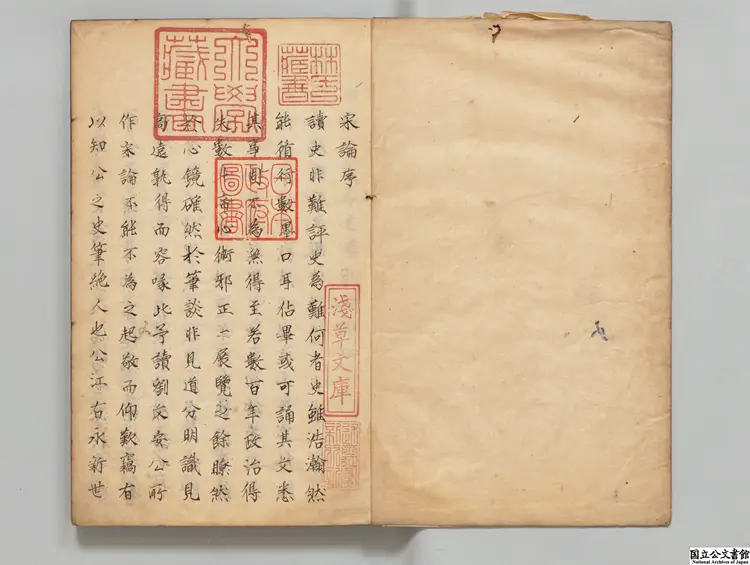 宋論序
讀史非難評史為難何者史雖浩瀚然
能循行數墨口耳佔畢或可誦其文悉
其事固不為無得至若數百年政治得
失數十心術邪正一展覽之餘瞭然
於心鏡確然於筆談非見道分明識見
高遠孰得而容喙此予讀劉文安公所
作宋論不能不為之起敬而仰歎竊有
以知公之史筆絶人也公江右永新世
林氏藏書
大學藏書
日本政府圖書
淺草文庫
国立公文書館
National Archives of Japan